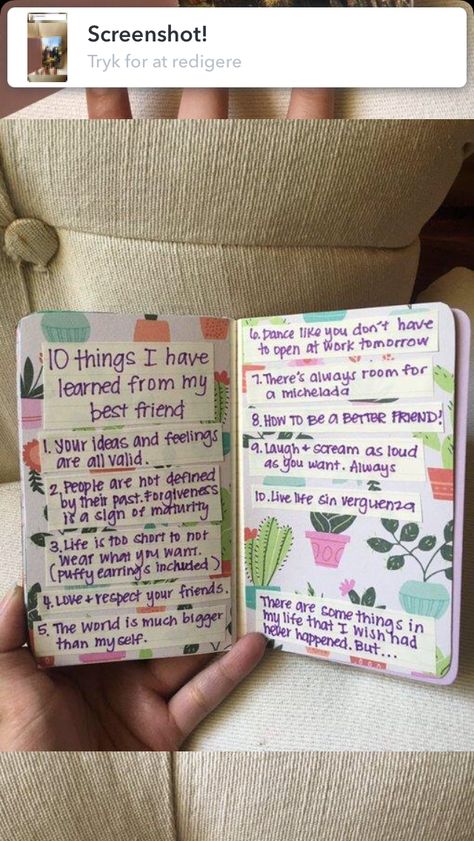 Screenshot!
Tryk for at redigere
10 things I have
learned from my
best friend
1. Your ideas and feelings
are all valid.
2. People are not defined
by their past. Forgiveness
is a sign of maturity
3. Life is too short to not
wear what you want.
(puffy earrings included)
4. Love + respect your friends.
5. The world is much bigger
than my self.
6. Dance like you don't have
to open at work tomorrow
7. There's always room for
a michelada
8. HOW TO BE A BETTER FRIEND!
9. Laugh + scream as loud
as you want. Always
10. Live life sin verguenza
There are some things in
my life that I wish had
never happened. But...